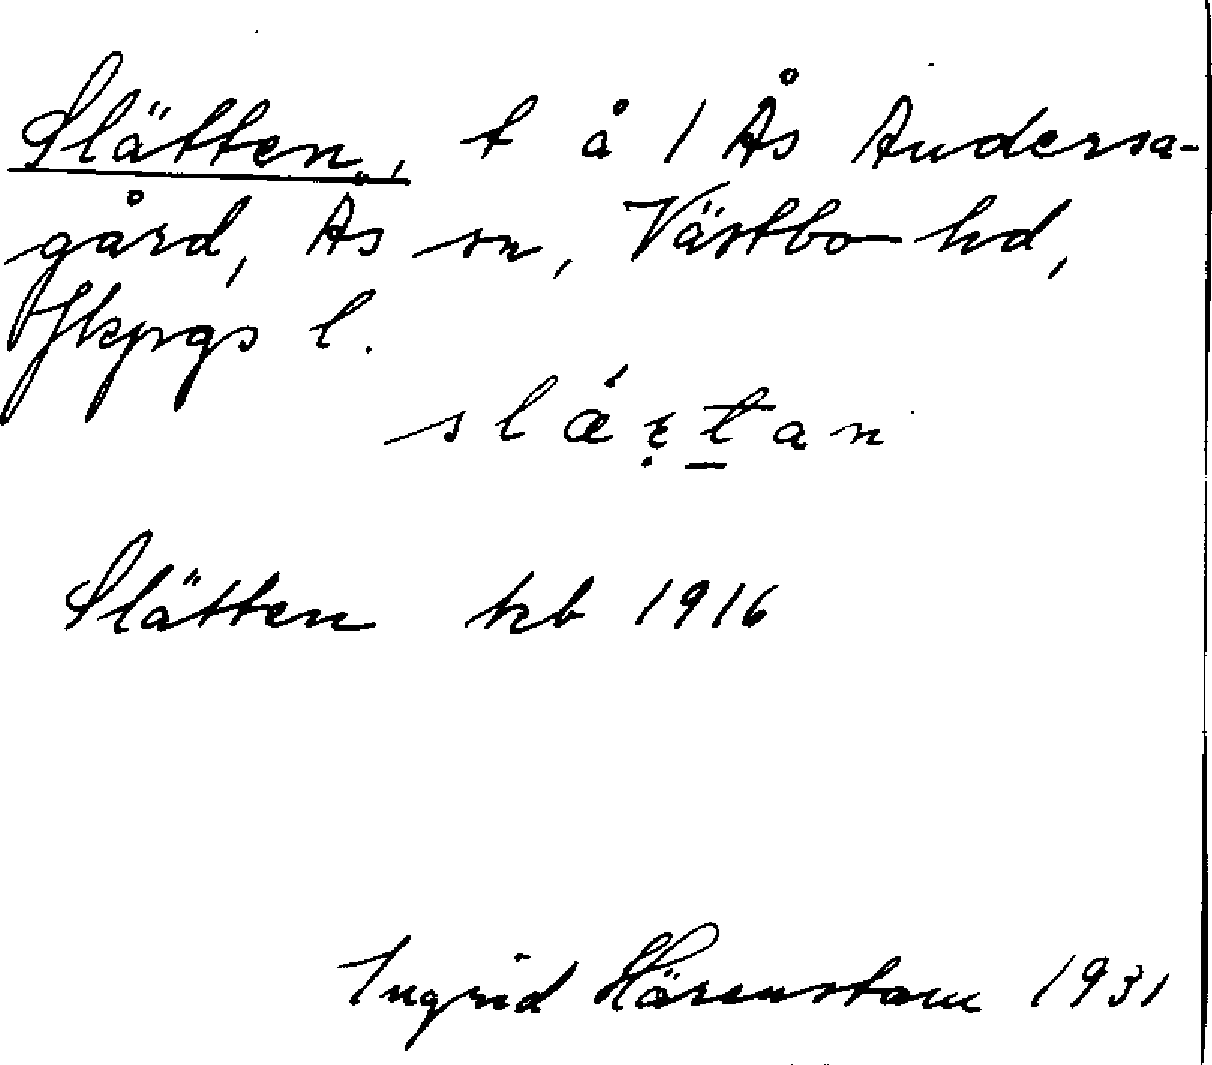 Slätten, t å 1 Ås Andersa-
gård, Ås sn, Västbo hd,
Jkpgs l.
Slätten kb 1916
Ingrid Härenstam 1931